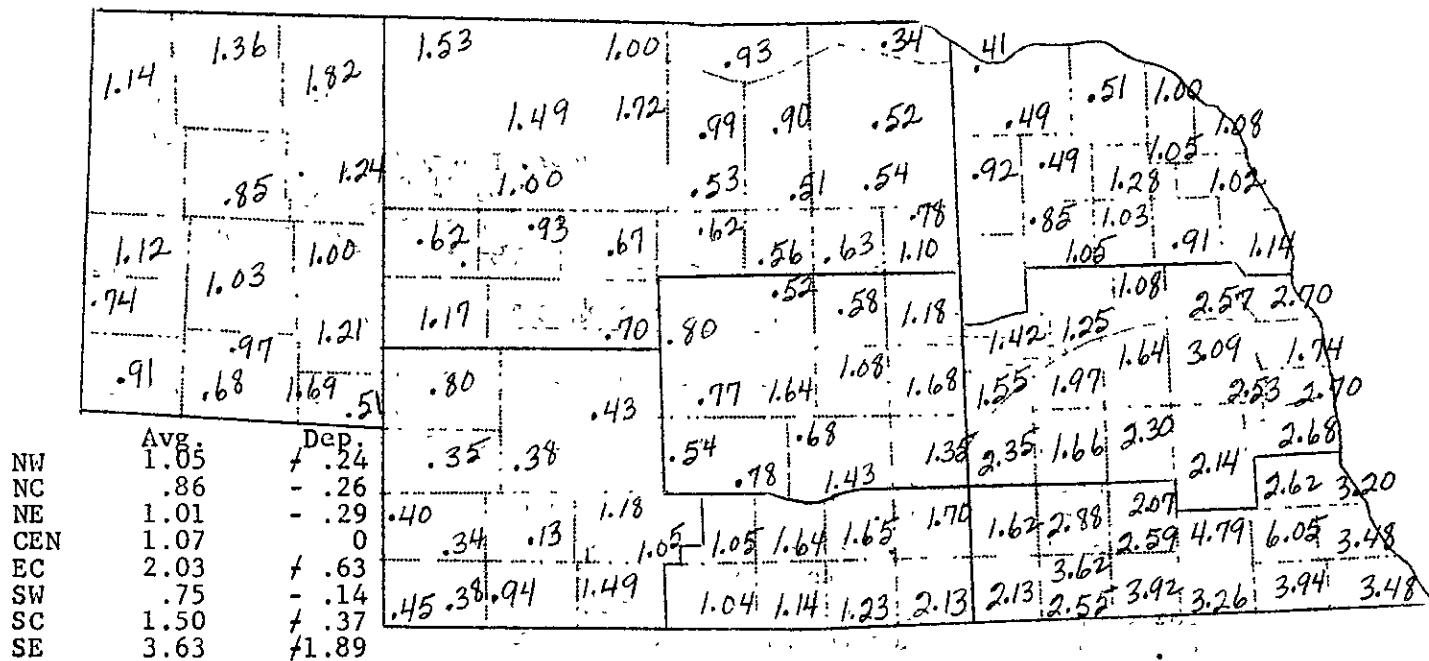 1.14 1.36 1.82 1.53 1.00 .93 .34 .41
1.49 1.72 .99 .90 .52 .49 .51 1.00 1.08
.85 1.24 1.00 .53 .51 .54 .92 .49 1.28 1.05 1.02
1.12 1.03 1.00 .62 .93 .67 .62 .56 .63 .78 1.10 .85 1.03 1.05 .91 1.14
.74 .97 1.21 1.17 .70 .80 .52 .58 1.18 1.42 1.25 1.08 2.57 2.70
.91 .68 1.69 .51 .80 .43 .77 1.64 1.08 1.68 1.55 1.97 1.64 3.09 1.74
2.53 2.70
.35 .38 .54 .78 .68 1.43 1.35 2.35 1.66 2.30 2.14 2.68
.40 .34 .13 1.18 1.05 1.05 1.64 1.65 1.70 1.62 2.88 2.07 2.59 4.79 2.62 6.05 3.20 3.48
.45 .38 .94 1.49 1.04 1.14 1.23 2.13 2.13 3.62 2.55 3.92 3.26 3.94 3.48
Avg. Dep.
NW 1.05 / .24
NC .86 - .26
NE 1.01 - .29
CEN 1.07 0
EC 2.03 / .63
SW .75 - .14
SC 1.50 / .37
SE 3.63 /1.89